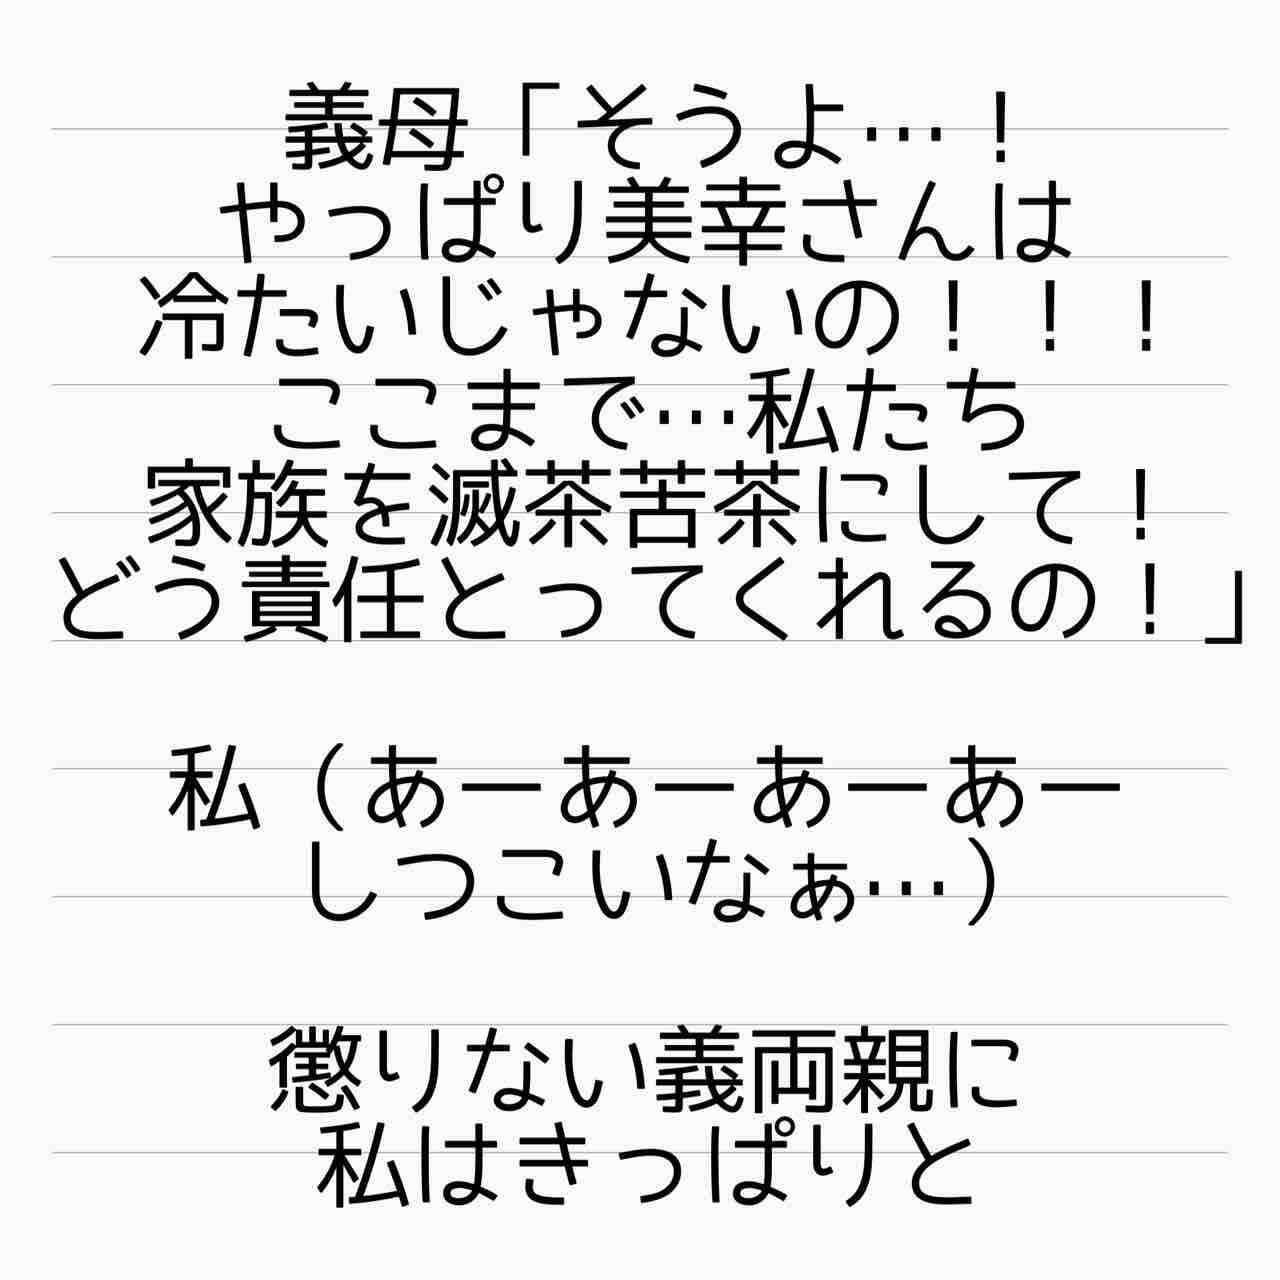 義母「そうよ…！
やっぱり美幸さんは
冷たいじゃないの！！！
ここまで…私たち
家族を滅茶苦茶にして！
どう責任とってくれるの！」
私（あーあーあーあー
しつこいなぁ…）
懲りない義両親に
私はきっぱりと